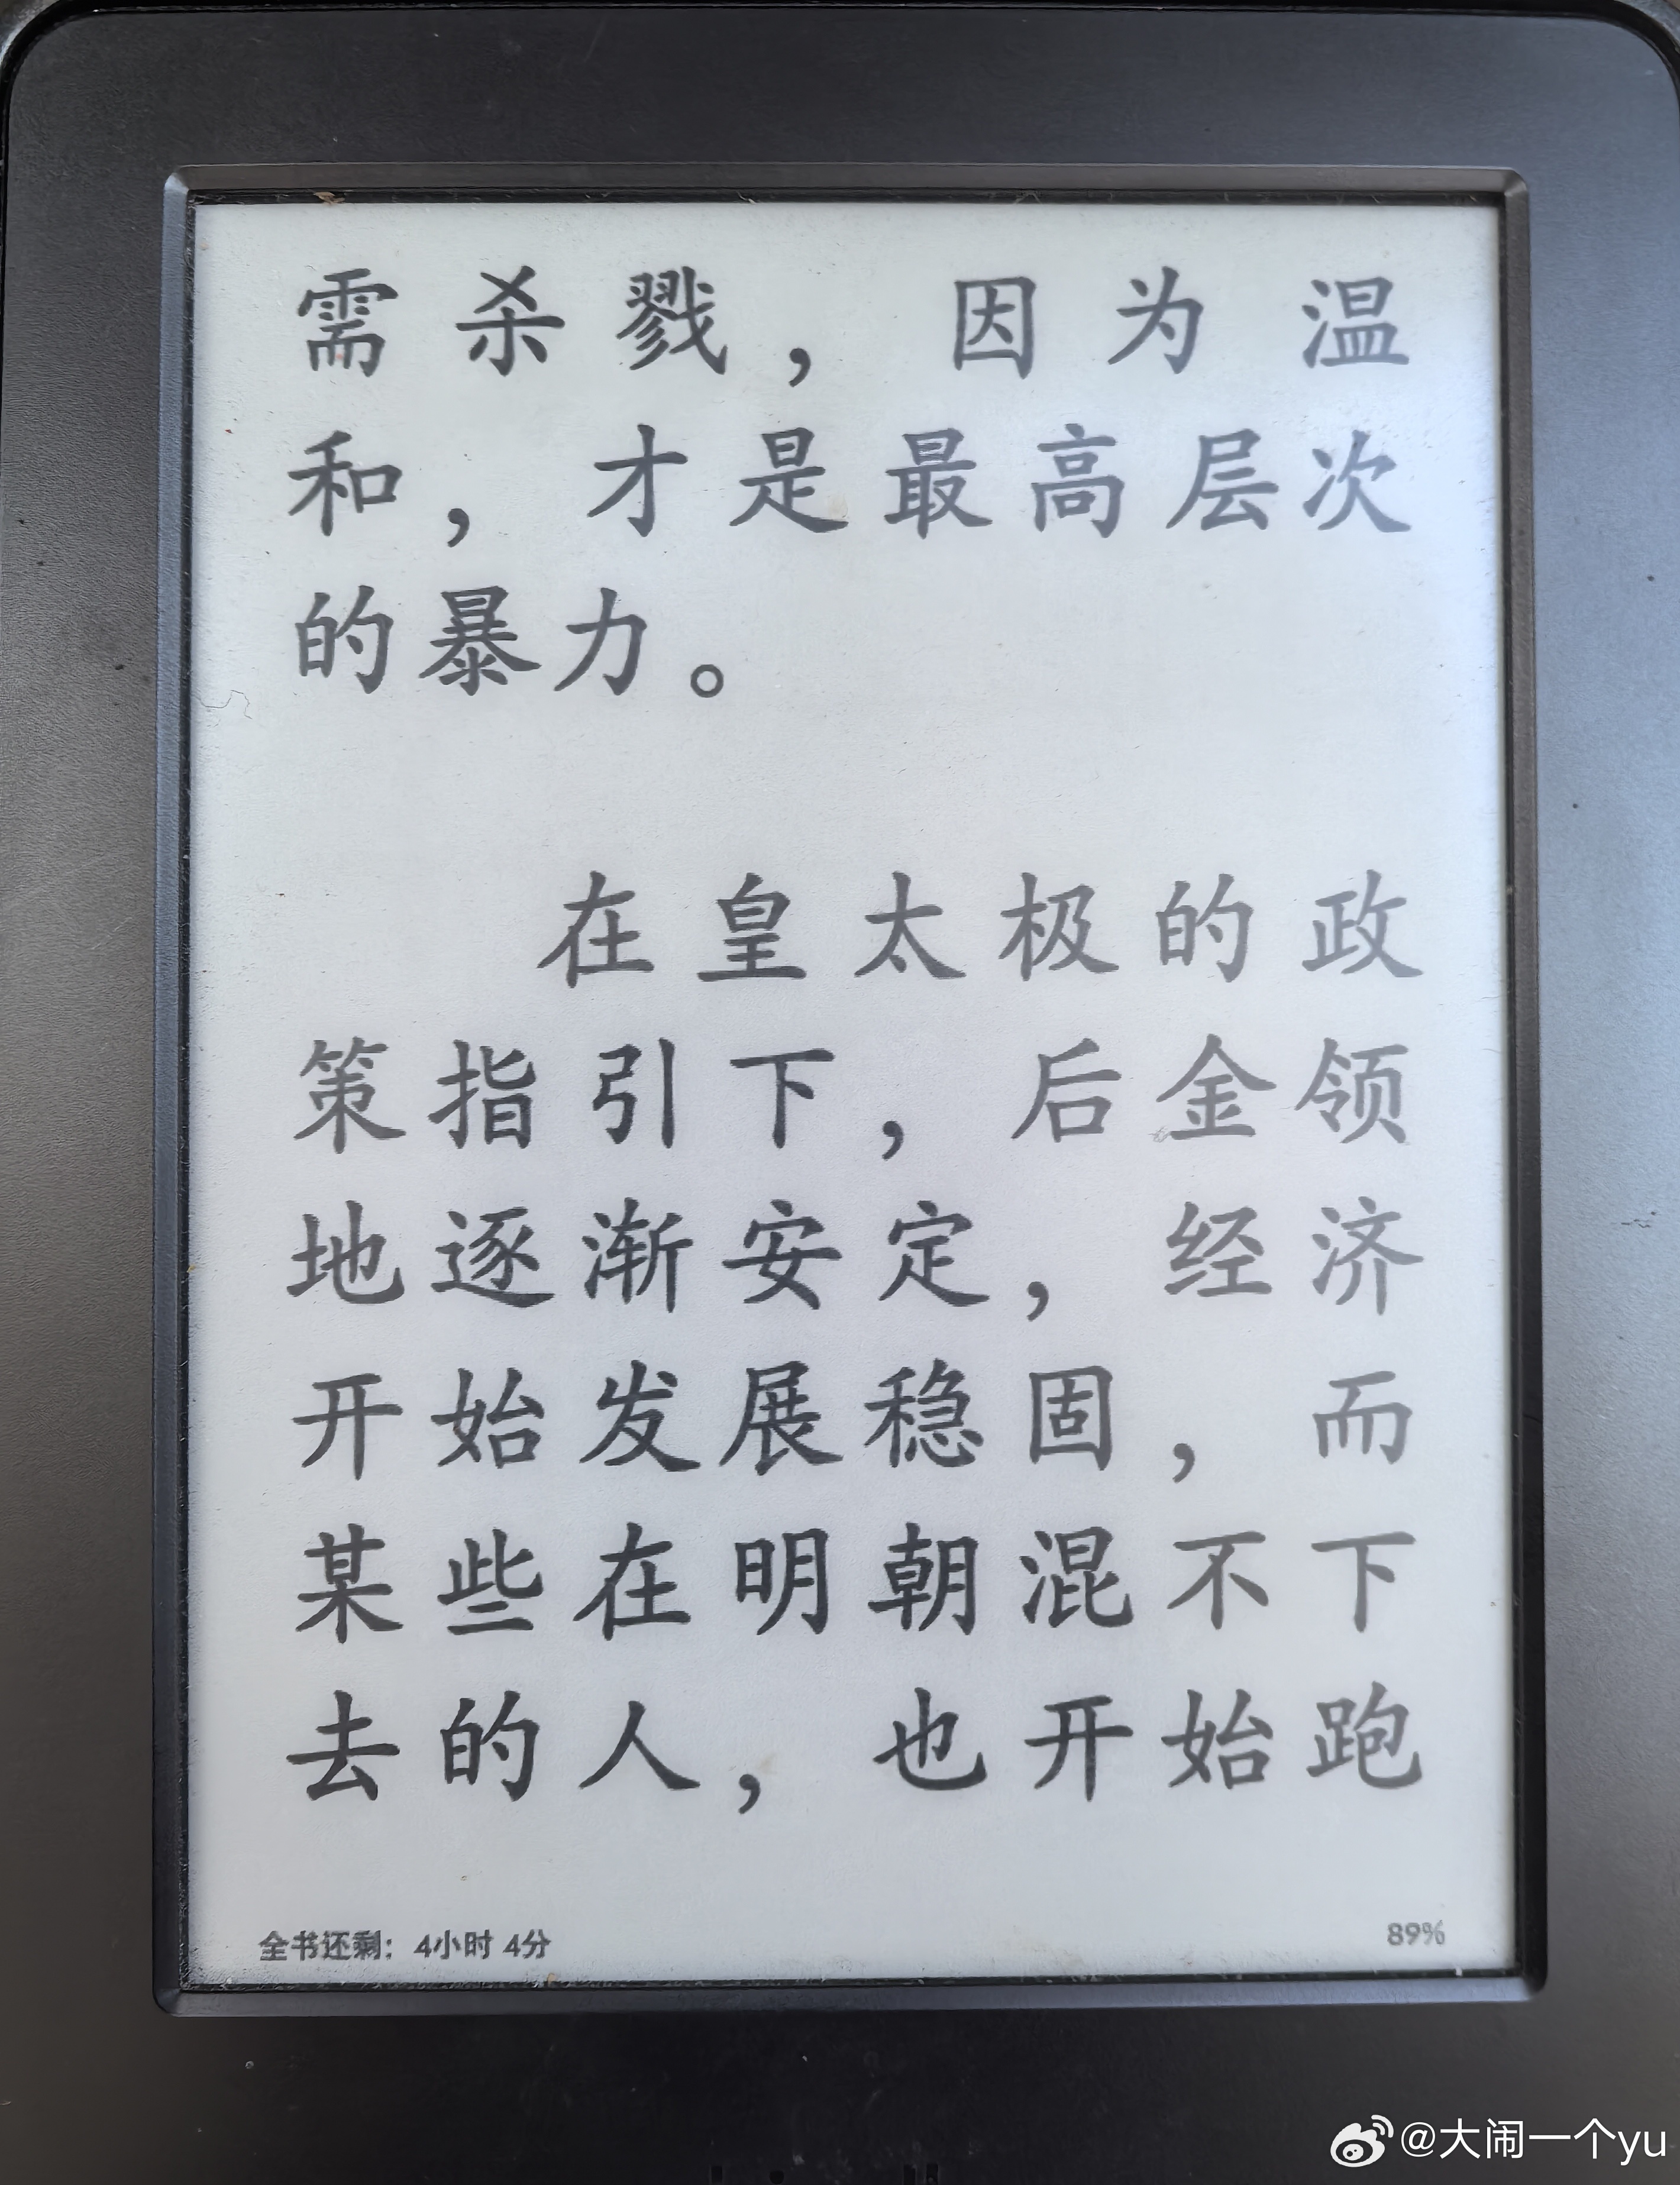 需杀戮，因为温
和，才是最高层次
的暴力。
在皇太极的政
策指引下，后金领
地逐渐安定，经济
开始发展稳固，而
某些在明朝混不下
去的人，也开始跑
全书还剩：4小时 4分
89%
@大闹一个yu